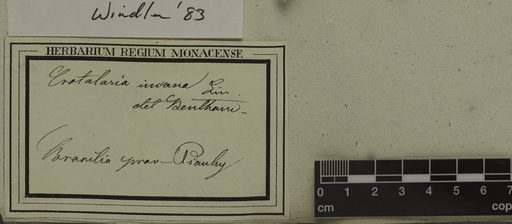 Windler '83
HERBARIUM REGIUM MONACENSE
Crotalaria incana Lin.
det Bentham
Brasilia prov Piauhy
0 1 2 3 4 5 6 7
cm cop